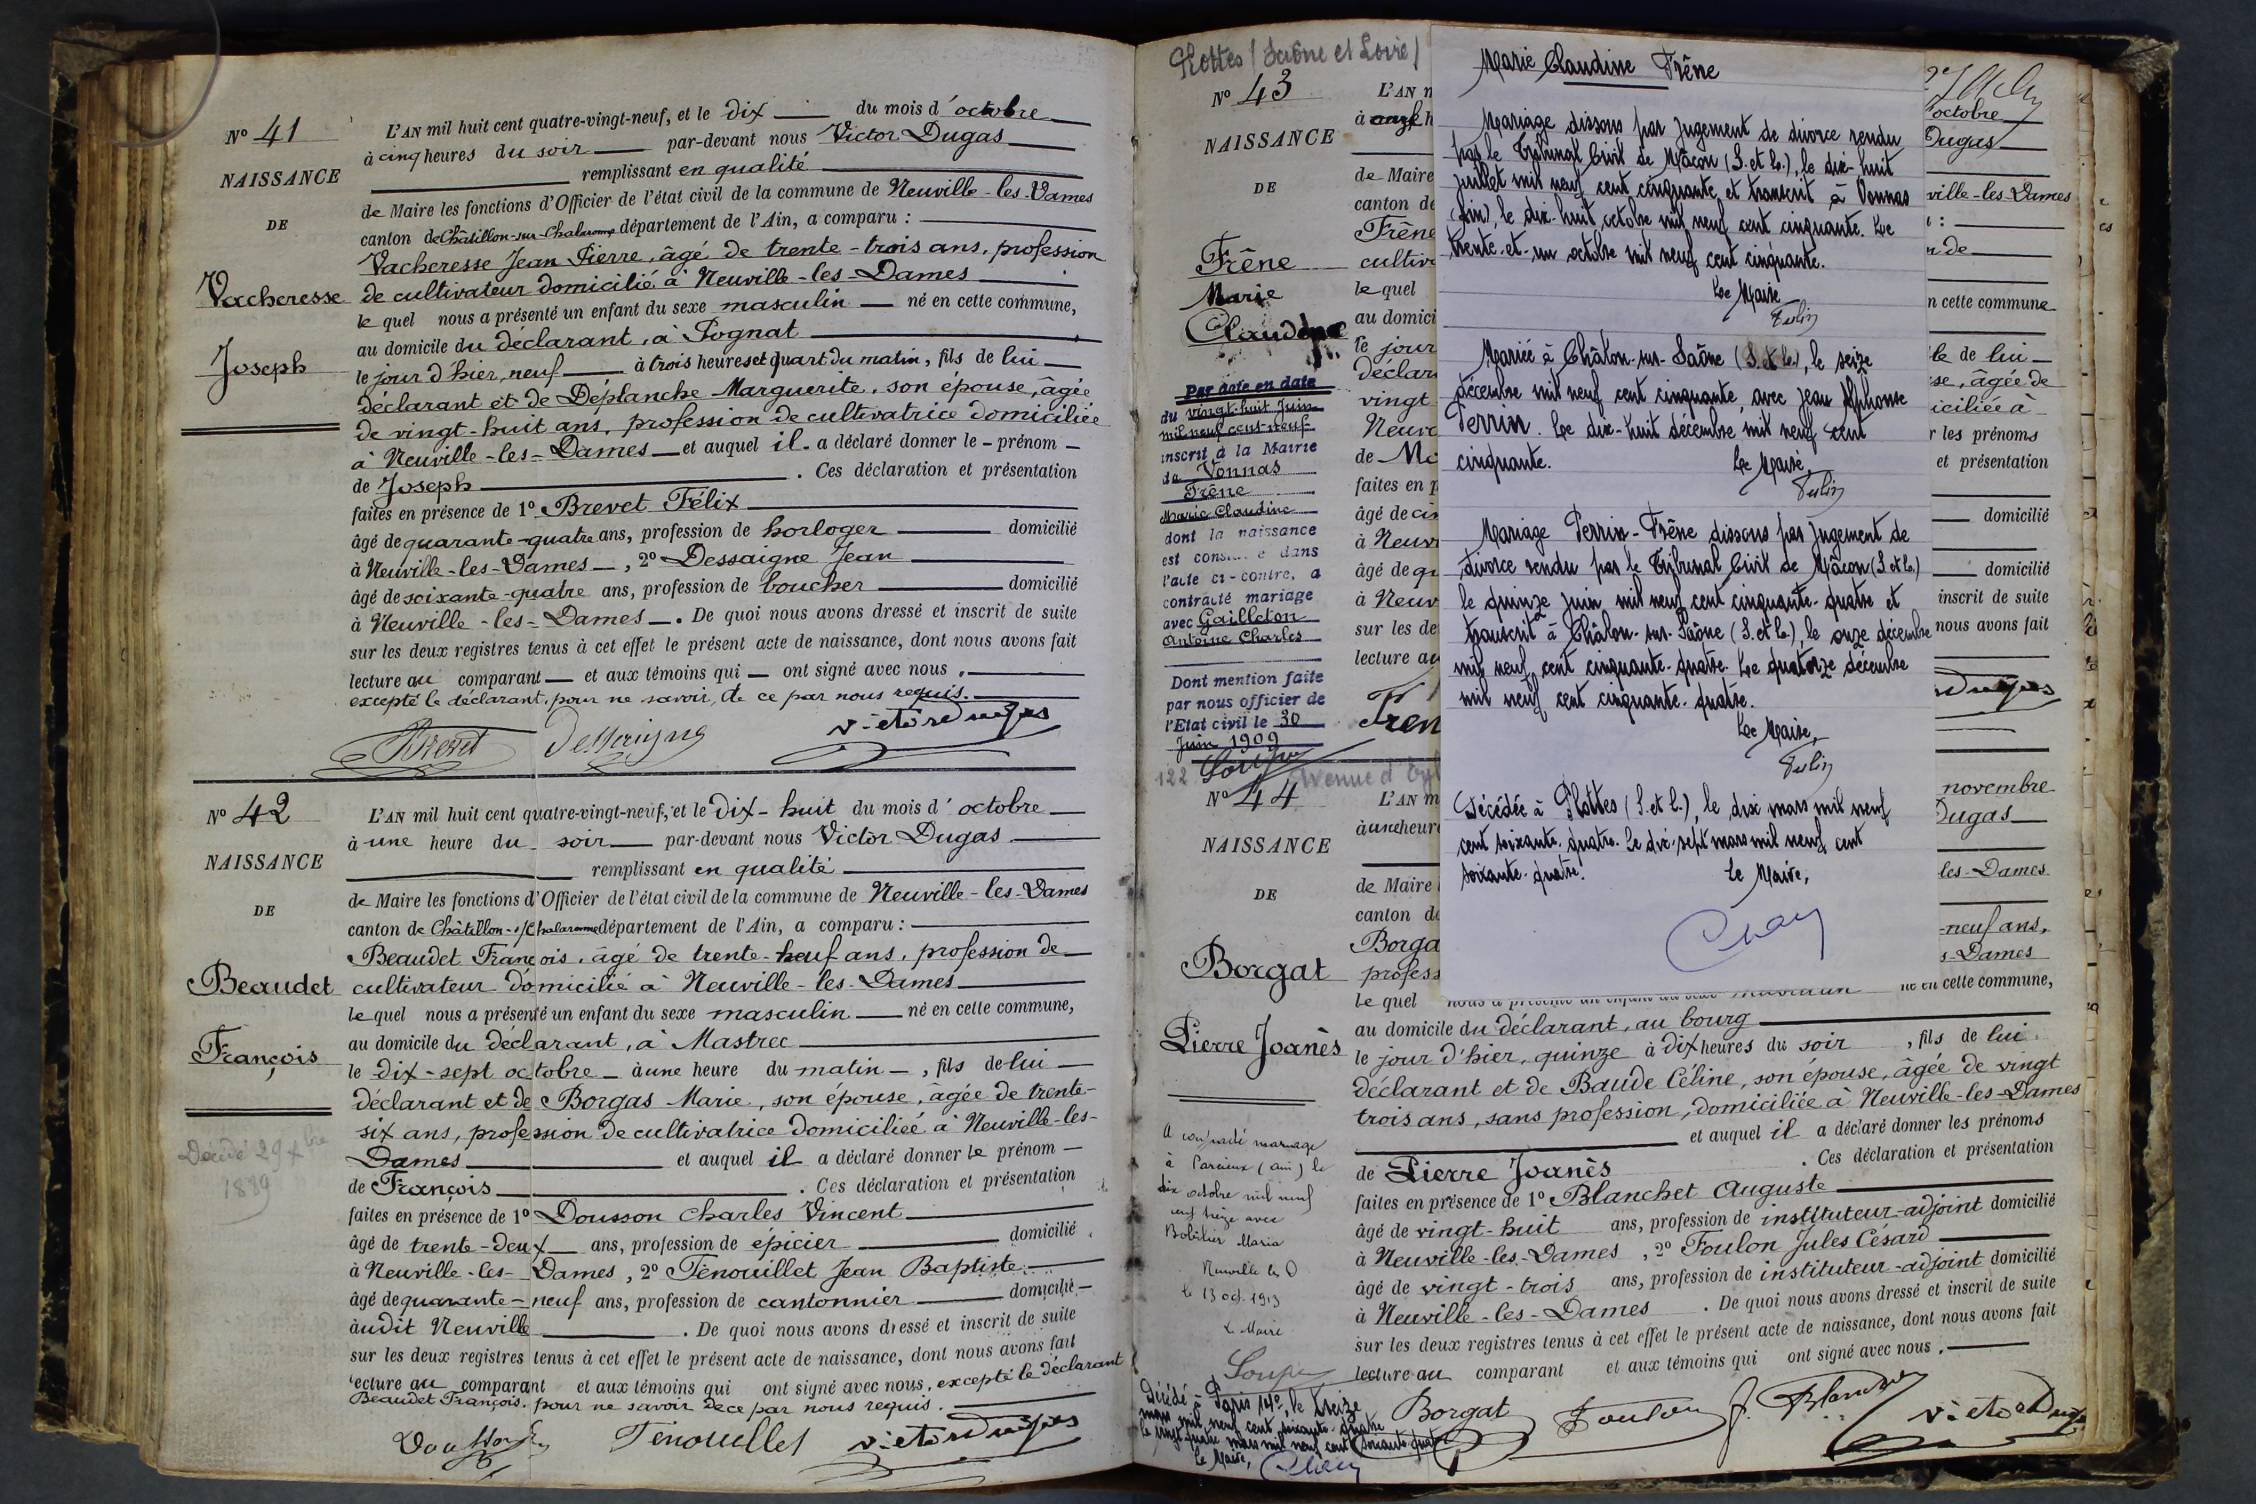 Nº 41
NAISSANCE
DE
Vacheresse
Joseph
L'AN mil huit cent quatre-vingt-neuf, et le dix du mois d'octobre
à cinq heures du soir par-devant nous Victor Dugas
remplissant en qualité
de Maire les fonctions d'Officier de l'état civil de la commune de Neuville-les-Dames
canton de Châtillon-sur-Chalaronne département de l'Ain, a comparu :
Vacheresse Jean Pierre, âgé de trente-trois ans, profession
de cultivateur domicilié à Neuville-les-Dames
lequel nous a présenté un enfant du sexe masculin né en cette commune,
au domicile du déclarant, à Pognat
le jour d'hier, neuf à trois heures et quart du matin, fils de lui
déclarant et de Déplanche Marguerite, son épouse, âgée
de vingt-huit ans, profession de cultivatrice domiciliée
à Neuville-les-Dames et auquel il a déclaré donner le prénom
de Joseph . Ces déclaration et présentation
faites en présence de 1º Brevet Félix
âgé de quarante-quatre ans, profession de horloger domicilié
à Neuville-les-Dames, 2º Dessaigne Jean
âgé de soixante-quatre ans, profession de boucher domicilié
à Neuville-les-Dames. De quoi nous avons dressé et inscrit de suite
sur les deux registres tenus à cet effet le présent acte de naissance, dont nous avons fait
lecture au comparant et aux témoins qui ont signé avec nous,
excepté le déclarant, pour ne savoir, de ce par nous requis.
Brevet Dessaigne Victor Dugas
Nº 42
NAISSANCE
DE
Beaudet
François
Décédé 29 Xbre
1889
L'AN mil huit cent quatre-vingt-neuf, et le dix-huit du mois d'octobre
à une heure du soir par-devant nous Victor Dugas
remplissant en qualité
de Maire les fonctions d'Officier de l'état civil de la commune de Neuville-les-Dames
canton de Châtillon-s/Chalaronne département de l'Ain, a comparu :
Beaudet François, âgé de trente-neuf ans, profession de
cultivateur domicilié à Neuville-les-Dames
lequel nous a présenté un enfant du sexe masculin né en cette commune,
au domicile du déclarant, à Mastrec
le dix-sept octobre à une heure du matin, fils de lui
déclarant et de Borgas Marie, son épouse, âgée de trente-
six ans, profession de cultivatrice domiciliée à Neuville-les-
Dames et auquel il a déclaré donner le prénom
de François . Ces déclaration et présentation
faites en présence de 1º Dousson Charles Vincent
âgé de trente-deux ans, profession de épicier domicilié
à Neuville-les-Dames, 2º Tenouillet Jean Baptiste
âgé de quarante-neuf ans, profession de cantonnier domicilié
audit Neuville . De quoi nous avons dressé et inscrit de suite
sur les deux registres tenus à cet effet le présent acte de naissance, dont nous avons fait
lecture au comparant et aux témoins qui ont signé avec nous, excepté le déclarant
Beaudet François, pour ne savoir de ce par nous requis.
Dousson Tenouillet Victor Dugas
Plottes (Saône et Loire)
Nº 43
NAISSANCE
DE
Frêne
Marie
Claudine
Par acte en date
du vingt-huit Juin
mil neuf cent neuf
inscrit à la Mairie
de Vonnas
Frêne
Marie Claudine
dont la naissance
est dans
l'acte ci-contre, a
contracté mariage
avec Gailleton
Antoine Charles
Dont mention faite
par nous officier de
l'Etat civil le 30
Juin 1909
Soupe
L'AN m
à onze h
de Maire
canton de
Frêne
cultiv
lequel
au domici
le jour
déclar
vingt
Neuv
de Ma
faites en p
âgé de cin
à Neuv
âgé de qu
à Neuv
sur les de
lecture au
Fren
Marie Claudine Frêne
Mariage dissous par jugement de divorce rendu
par le Tribunal Civil de Mâcon (S. et L.), le dix-huit
juillet mil neuf cent cinquante et transcrit à Vonnas
(Ain), le dix-huit octobre mil neuf cent cinquante. Le
trente-et-un octobre mil neuf cent cinquante.
Le Maire
Mariée à Châlon-sur-Saône (S. et L.), le seize
décembre mil neuf cent cinquante, avec Jean Alphonse
Perrin. Le dix-huit décembre mil neuf cent
cinquante. Le Maire,
Mariage Perrin-Frêne dissous par jugement de
divorce rendu par le Tribunal Civil de Mâcon (S. et L.)
le quinze juin mil neuf cent cinquante-quatre et
transcrit à Châlon-sur-Saône (S. et L.), le onze décembre
mil neuf cent cinquante-quatre. Le quatorze décembre
mil neuf cent cinquante-quatre.
Le Maire,
Décédée à Plottes (S. et L.), le dix mars mil neuf
cent soixante-quatre. Le dix-sept mars mil neuf cent
soixante-quatre. Le Maire,
octobre
Dugas
ville-les-Dames
:
n de
n cette commune
le de lui
se, âgée de
iciliée à
r les prénoms
et présentation
domicilié
domicilié
inscrit de suite
nous avons fait
122 Avenue d
Nº 44
NAISSANCE
DE
Borgat
Pierre Joanès
A contracté mariage
à Parcieux (Ain) le
dix octobre mil neuf
cent treize avec
Maria
Neuville les D
le 13 oct. 1913
Le Maire
Soupe
Décédé à Paris 14e, le treize
mars mil neuf cent soixante-quatre
le vingt quatre mars mil neuf cent soixante quatre
Le Maire,
L'AN m
à une heure
de Maire
canton de
Borga
profess
novembre
Dugas
les-Dames
-neuf ans,
s-Dames
lequel nous a présenté un enfant du sexe masculin né en cette commune,
au domicile du déclarant, au bourg
le jour d'hier, quinze à dix heures du soir, fils de lui
déclarant et de Baude Céline, son épouse, âgée de vingt
trois ans, sans profession, domiciliée à Neuville-les-Dames
et auquel il a déclaré donner les prénoms
de Pierre Joanès . Ces déclaration et présentation
faites en présence de 1º Blanchet Auguste
âgé de vingt-huit ans, profession de instituteur-adjoint domicilié
à Neuville-les-Dames, 2º Foulon Jules César
âgé de vingt-trois ans, profession de instituteur-adjoint domicilié
à Neuville-les-Dames . De quoi nous avons dressé et inscrit de suite
sur les deux registres tenus à cet effet le présent acte de naissance, dont nous avons fait
lecture au comparant et aux témoins qui ont signé avec nous.
Borgat Foulon J. Blanchet Victor Dugas